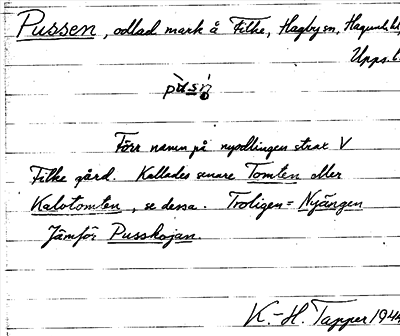 Pussen, odlad mark å Filke, Hagby sn, Hagunda hd,
Upps. l.
pùsn̥
Förr namn på nyodlingen strax V
Filke gård. Kallades senare Tomten eller
Kalvtomten, se dessa. Troligen = Nyängen
Jämför Pusskojan.
K.-H. Tapper 1944